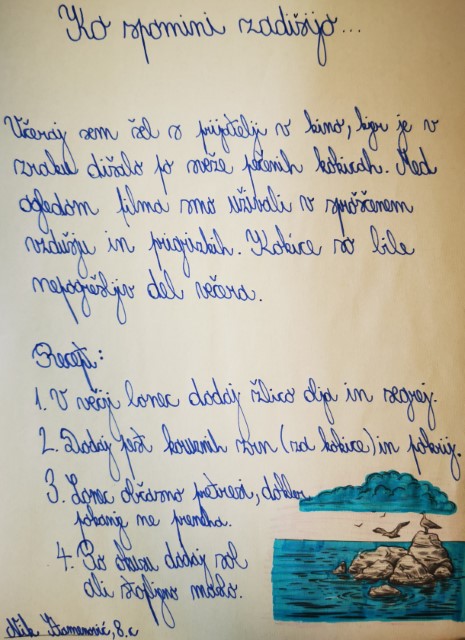 Ko spomini zadišijo...
Včeraj sem šel s prijatelji v kino, kjer je v
zraku dišalo po sveže pečenih kokicah. Med
ogledom filma smo uživali v sproščenem
vzdušju in prigrizkih. Kokice so bile
nepogrešljiv del večera.
Recept:
1. V večji lonec dodaj žlico olja in segrej.
2. Dodaj pest koruznih zrn (za kokice) in pokrij.
3. Lonec občasno pretresi, dokler
pokanje ne preneha.
4. Po okusu dodaj sol
ali stopljeno maslo.
Nik Stamenović, 8. c